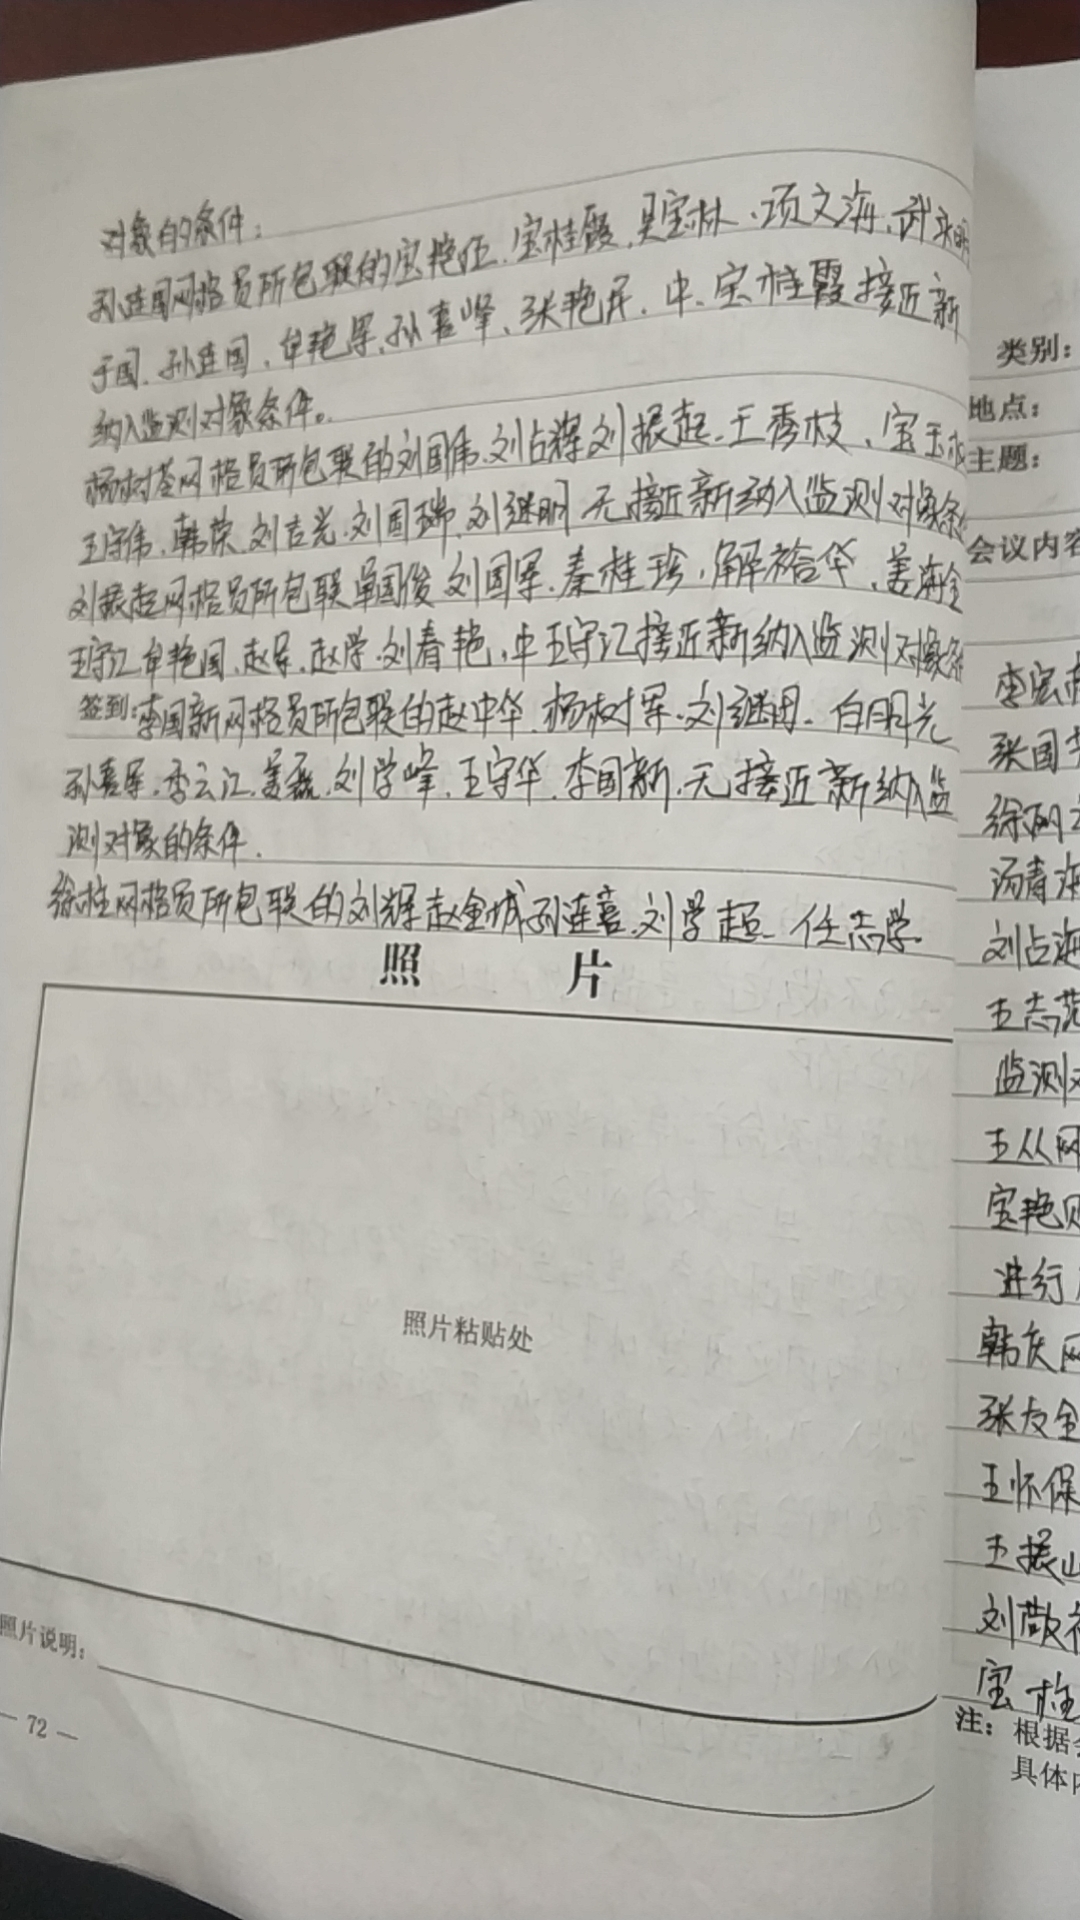 对象的条件:
孙连国网格员所包联的宝艳伍、宝桂霞、吴宝林、项文海、武永明
于国、孙连国、单艳军、孙喜峰、张艳民、中、宝桂霞接近新
纳入监测对象条件。
杨树苓网格员所包联的刘国伟、刘占辉、刘振起、王秀枝、宝玉
王守伟、韩荣、刘吉光、刘国瑞、刘继明无接近新纳入监测对象条
刘振起网格员所包联单国俊、刘国军、秦桂珍、解裕华、姜海全
王守江、单艳国、赵军、赵学、刘春艳、中王守江接近新纳入监测对象条
签到:李国新网格员所包联的赵中华、杨树军、刘继国、白明光
孙喜军、李云江、姜磊、刘学峰、王守华、李国新、无接近新纳入监
测对象的条件.
徐柱网格员所包联的刘辉、赵金城、孙连喜、刘学超、任志学、
照 片
照片粘贴处
照片说明:
— 72 —
类别:
地点:
主题:
会议内容
李宏
张国
徐丽
汤青海
刘占海
王志范
监测对
王从网
宝艳
进行
韩庆网
张友金
王怀保
王振山
刘敬
宝桂
注: 根据
具体内